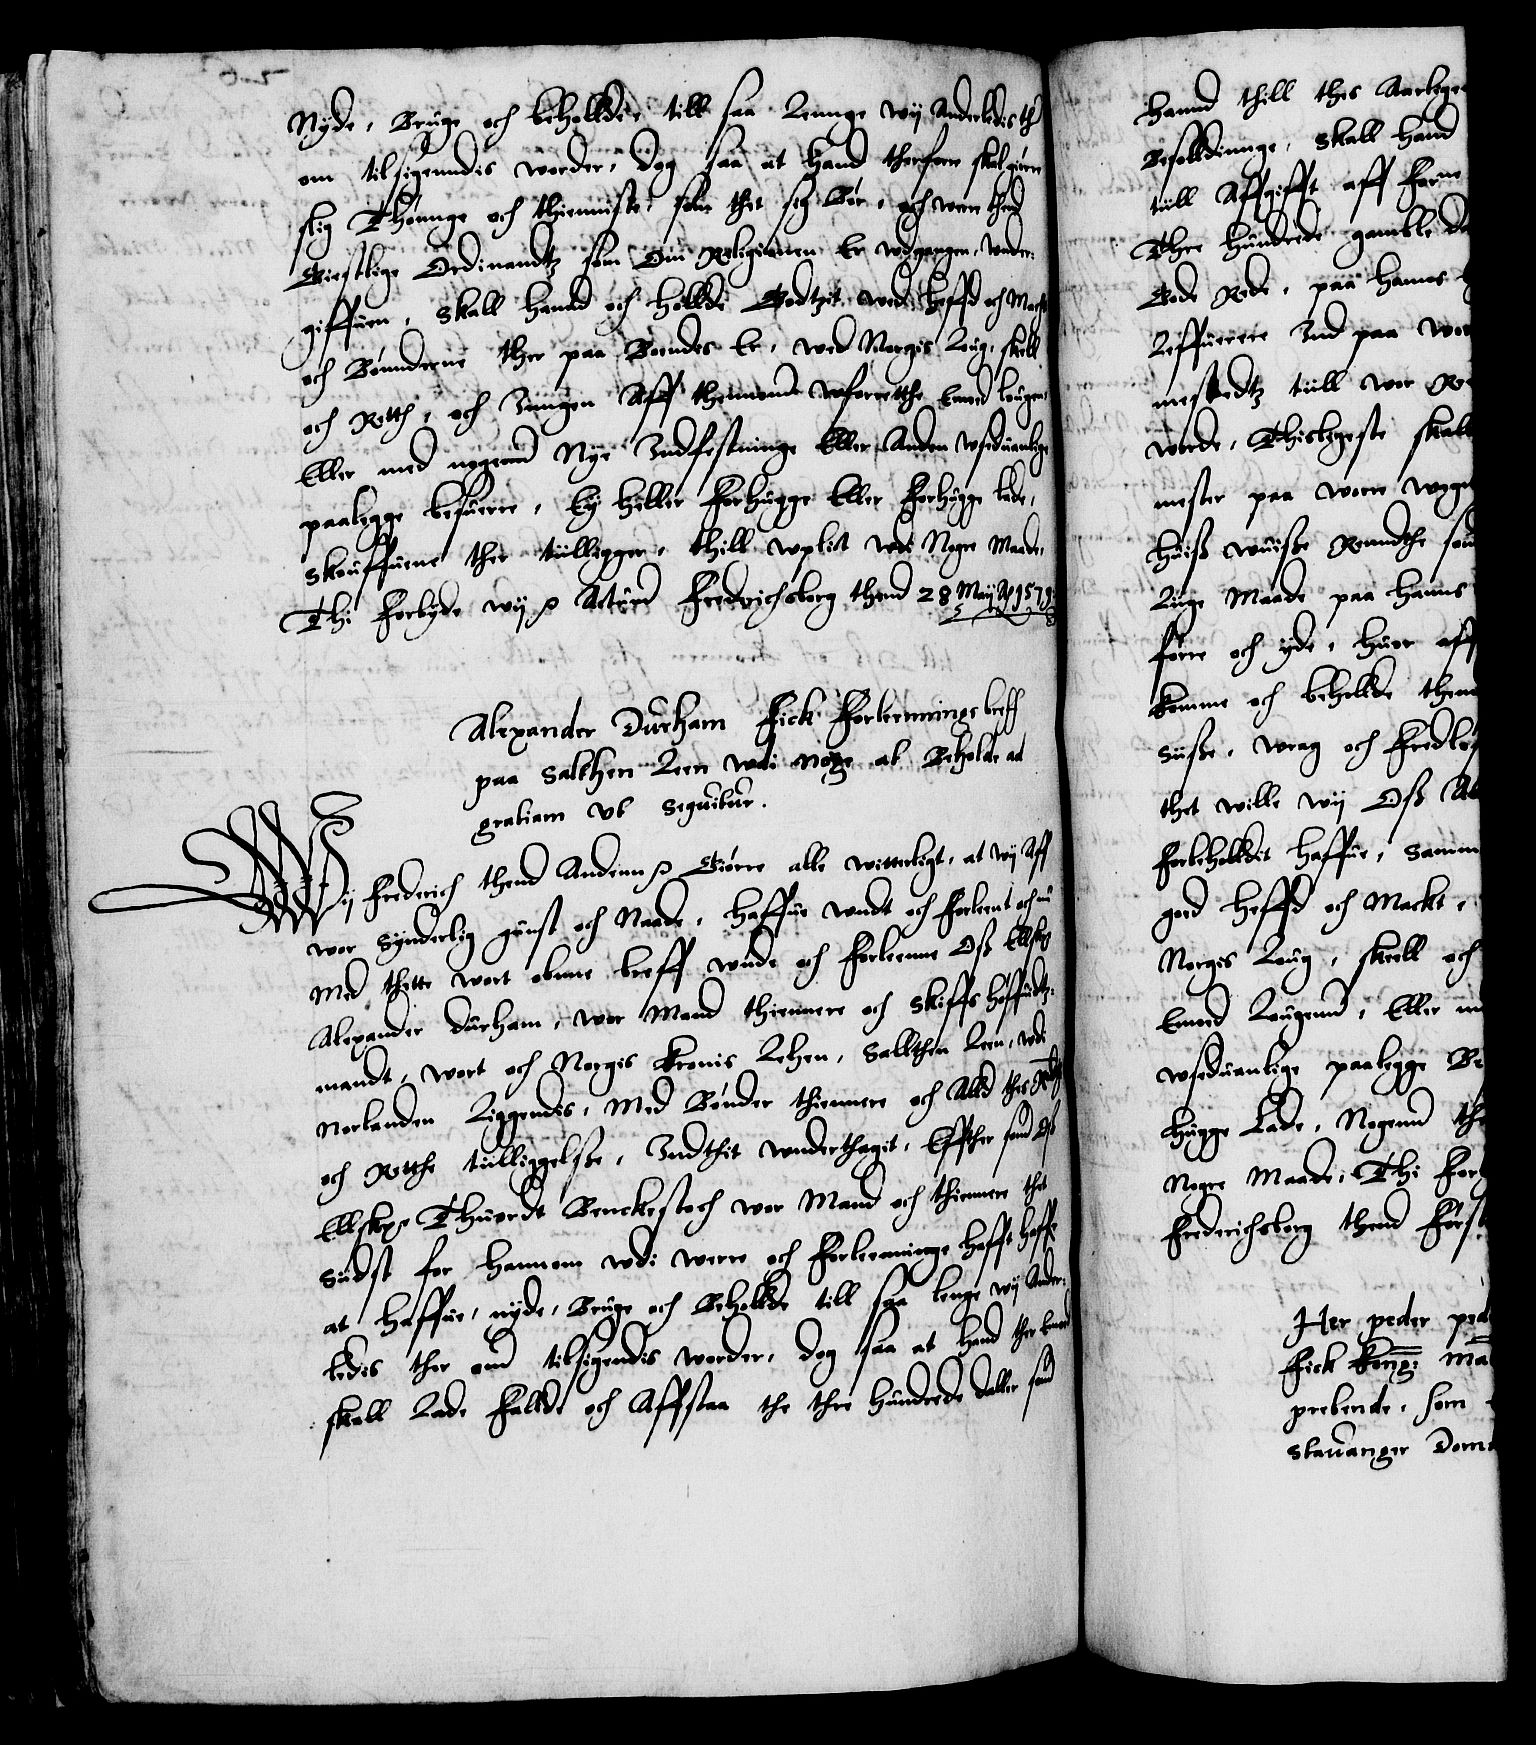 Nyde, Bruge och beholdde, till saa Lennge wij Anderledis th
om tilsigenndis worder, dog saa at hand therfore skal giøre
slig Thønnge och thienniste, som thet seg Bør, och were thend
Giestlige Ordinandtz som Om Religionen Er wdgangen, wnder-
giffuen, Skall hannd och hollde Godtzit wed heffd och Macht
och Bønnderne ther paa Boendes Er, wed Norgis Loug, skell
och Retth, och Inngen Aff thennom wforretthe Emod lougen
Eller med nogennd Nye Indfestninge Eller Anden wseduanlige
paalegge besuerre, Ey heller Forhugge Eller Forhygge lade,
Skouffuene ther tiilligger, thill wplict wdi Nogre Maade,
Thi Forbyde wij Actum Fredrichsborg thend 28 Maij Ap 1579
Alexander Durham Fick Forlenningsbreff
paa Salthen Leen wdi Norge at Beholde ad
gratiam vt Sequitur.
Wij Frederich thend Andenn Giørre alle witterligt, at wij Aff
wor Synderlig gunst och Naade, haffue wndt och Forlent och nu
Med thette wort obnne breff wnde och Forleenne Oss Elskelig
Alexander Durham, wor Mand thiennere och Skiffs høffuidtz-
mandt, wort och Norgis Kronis Lehen, Sallthen Leen, wdi
Norlanden Liggendis, Med Bønder thiennere och Alld thes Rentte
och Retthe tiilliggelsse, Indthit wnderthagit, Effther som Oss
Elskelig Thuordt Benckestoch wor Mand och thiennere thet
Sidst for hannom wdi werre och Forlenninge hafft haffr
at haffue, nyde, Bruge och Beholdde till saa lenge wij Ander-
ledis ther om tilsigendis worder, dog saa at hand ther Emod
skall Lade Falde och Affstaa the thre hundrede daller som
hannd thill thes Aarlige
Besolldinnge, Skall hand
tiill Affgifft aff Forne
Thre hundrede gamble da
Gode Rede, paa hannes
Leffuerere Ind paa wor
mestedtz tiill wor Re
worde, Thisligeste skall
mester paa worre wegn
huiss wuisse Renndthe som
Lige Maade paa hanns
førre och yde, huor aff
komme och beholde then
Siisse, wrag och Fredløs
thet wille wij Oss Al
Forbeholdit haffue, Samm
god heffd och Mackt,
Norgis Loug, skell och
Emod Lougennd, Eller m
wseduanlige paalegge Be
hugge Lade, Nogennd the
Nogre Maade, Thi For
Frederichsborg thend Først
Her peder ped
Fick Kong: Ma
prebende, som
Stauanger Dom